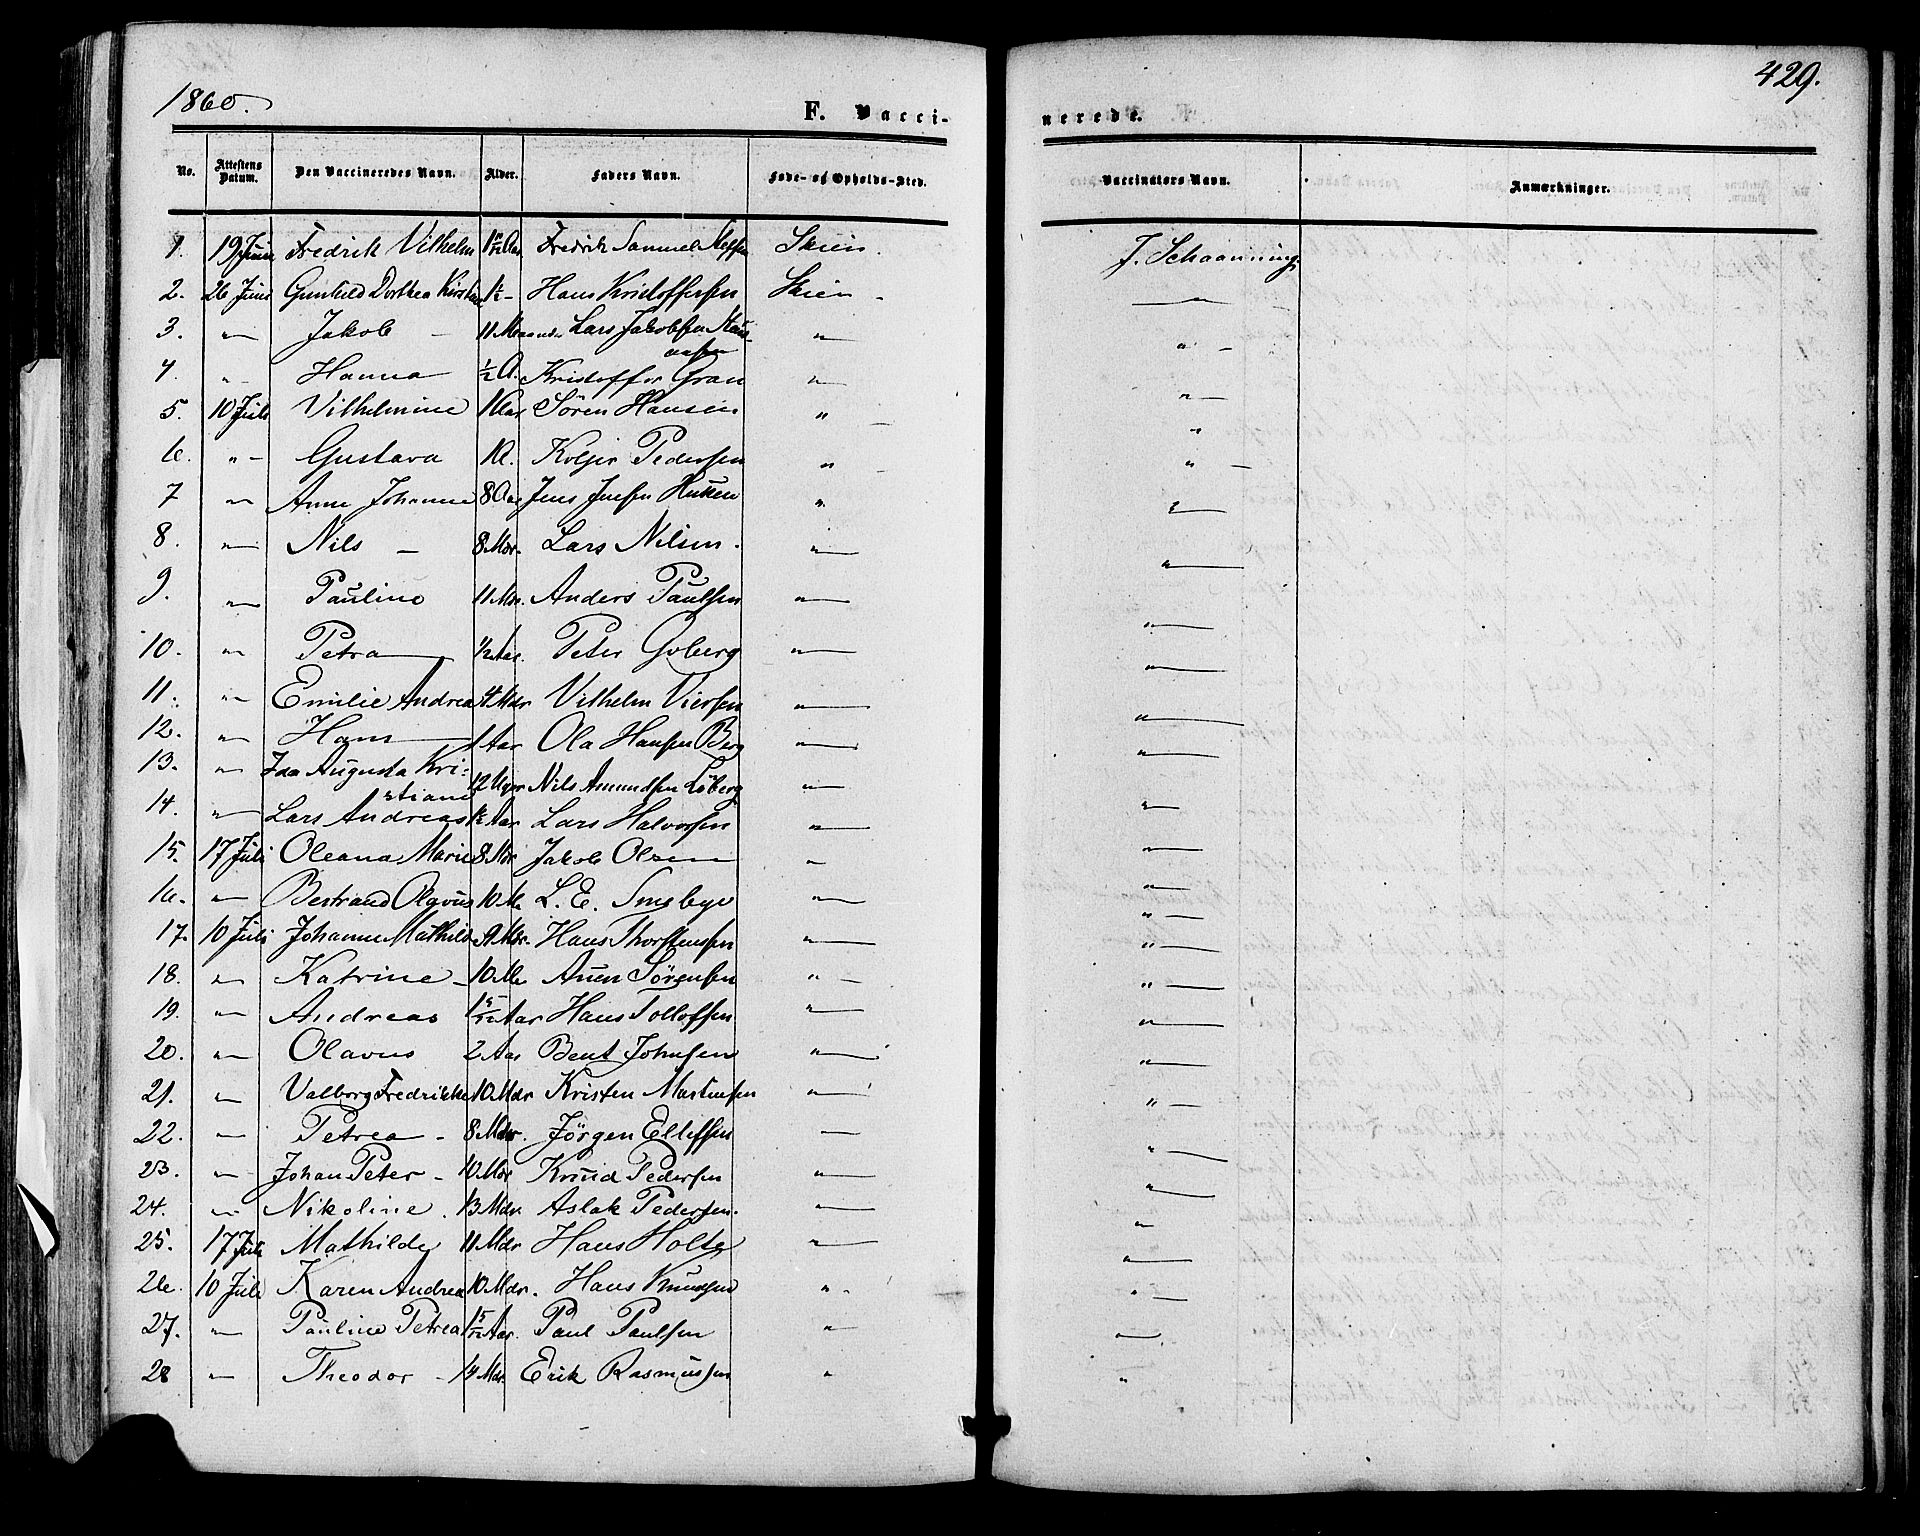 1860.
429.
F. Vacci-
nerede.
No. Attestens Datum. Den Vaccineredes Navn. Alder. Faders Navn. Føde- og Opholds-Sted. Vaccinators Navn. Anmærkninger.
1. 19 Juni Fredrik Vilhelm Fredrik Samuel Skien. J. Schaanning
2. 26 Juni Gunhild Dorthea 1½ - Hans Kristoffersen Skien -
3. " Jakob - 11 Maaneder Lars Jakobsen "
4. " Hanna ½ A. Kristoffer Gran "
5. 10 Juli Vilhelmine 1 Aar Søren Hansen "
6. " Gustava 1 A. Pedersen "
7 " Anne Johanne 8 Aar Jens Jensen "
8. " Nils - 8 Mdr. Lars Nilsen. "
9. " Pauline 11 Mdr. Anders Paulsen "
10. " Petra ½ Aar. Peter "
11. " Emilie Andrea 4 Mdr Vilhelm "
12. " Hans 1 Aar Ola Hansen Berg "
13. " Ida Augusta Kri-
stiane 12 Nils Amundsen Løberg "
14. " Lars Andreas 1½ Aar Lars Halvorsen "
15. 17 Juli Oleana Marie 8 Mdr Jakob Olsen "
16. " Bertrand 10 M L. E. Smebye "
17. 10 Juli Johanne Mathilde 9 Mdr. Hans Thorstensen "
18. " Katrine - 10 M Sörensen "
19. " Andreas 1 5/12 Aar Hans Tollofsen "
20. " Olavus 2 Aar Bent Johnsen "
21. " Valborg Fredrikke 10 Mdr Kristen "
22. " Petrea - 8 Mdr. Jörgen Ellefsen "
23. " Johan Peter - 10 Mdr Knud Pedersen "
24. " Nikoline. 13 Mdr. Aslak Pedersen. "
25. 17 Juli Mathilde 11 Mdr Hans Holte "
26. 10 Juli Karen Andrea 10 Mdr. Hans Knudsen "
27. " Pauline Petrea 1 5/12 Aar. Paul Paulsen "
28 " Theodor - 14 Mdr. Erik Rasmussen "